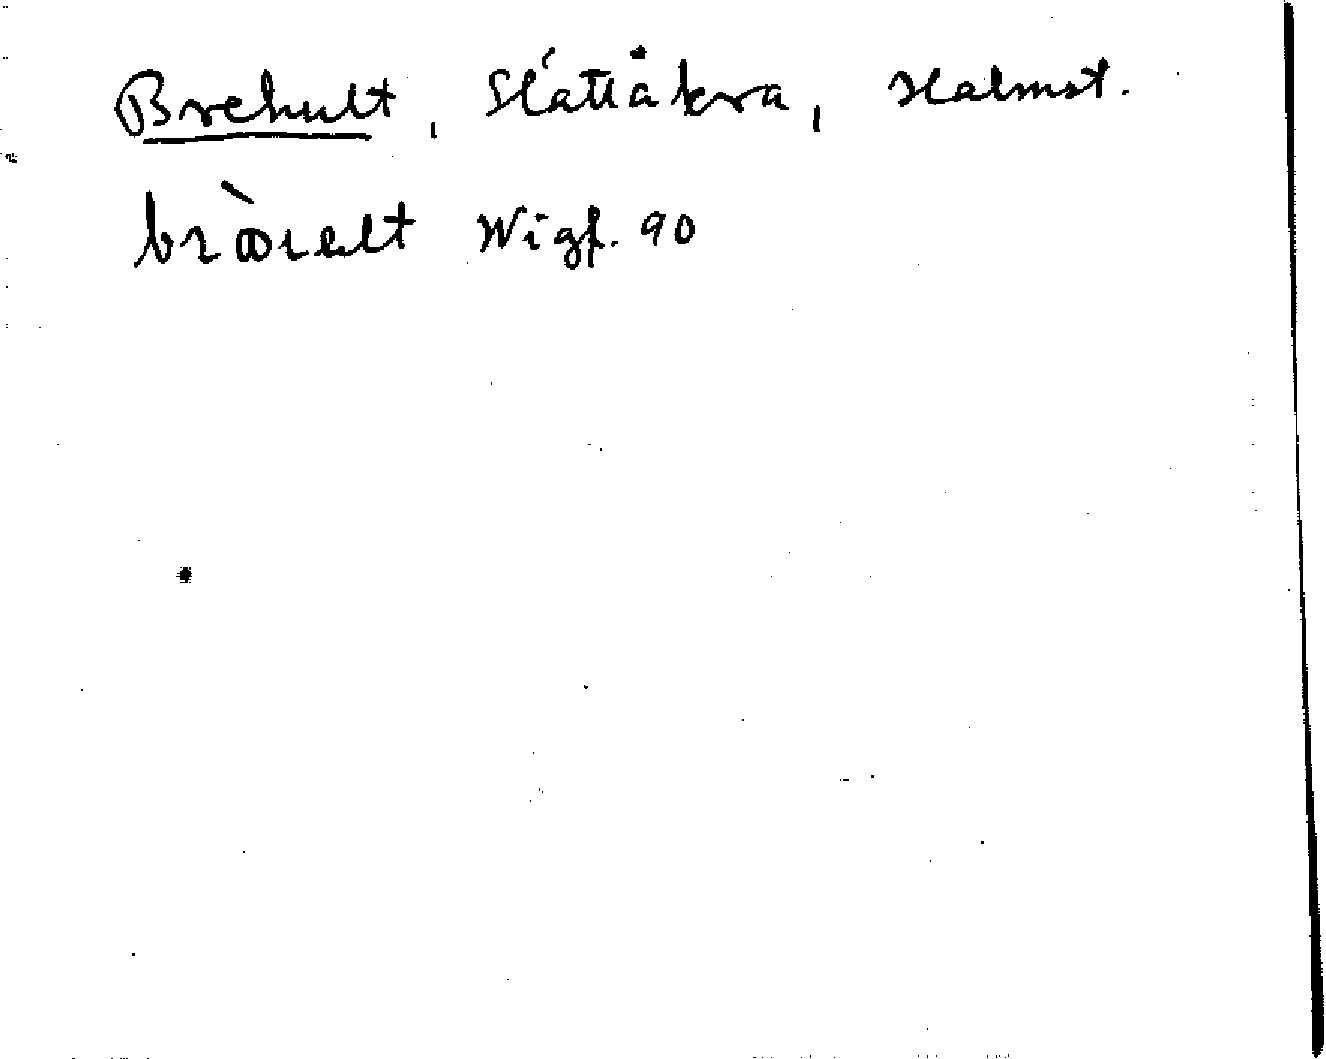 Brehult, Slättåkra, Halmst.
bràɹelt Wigf. 90